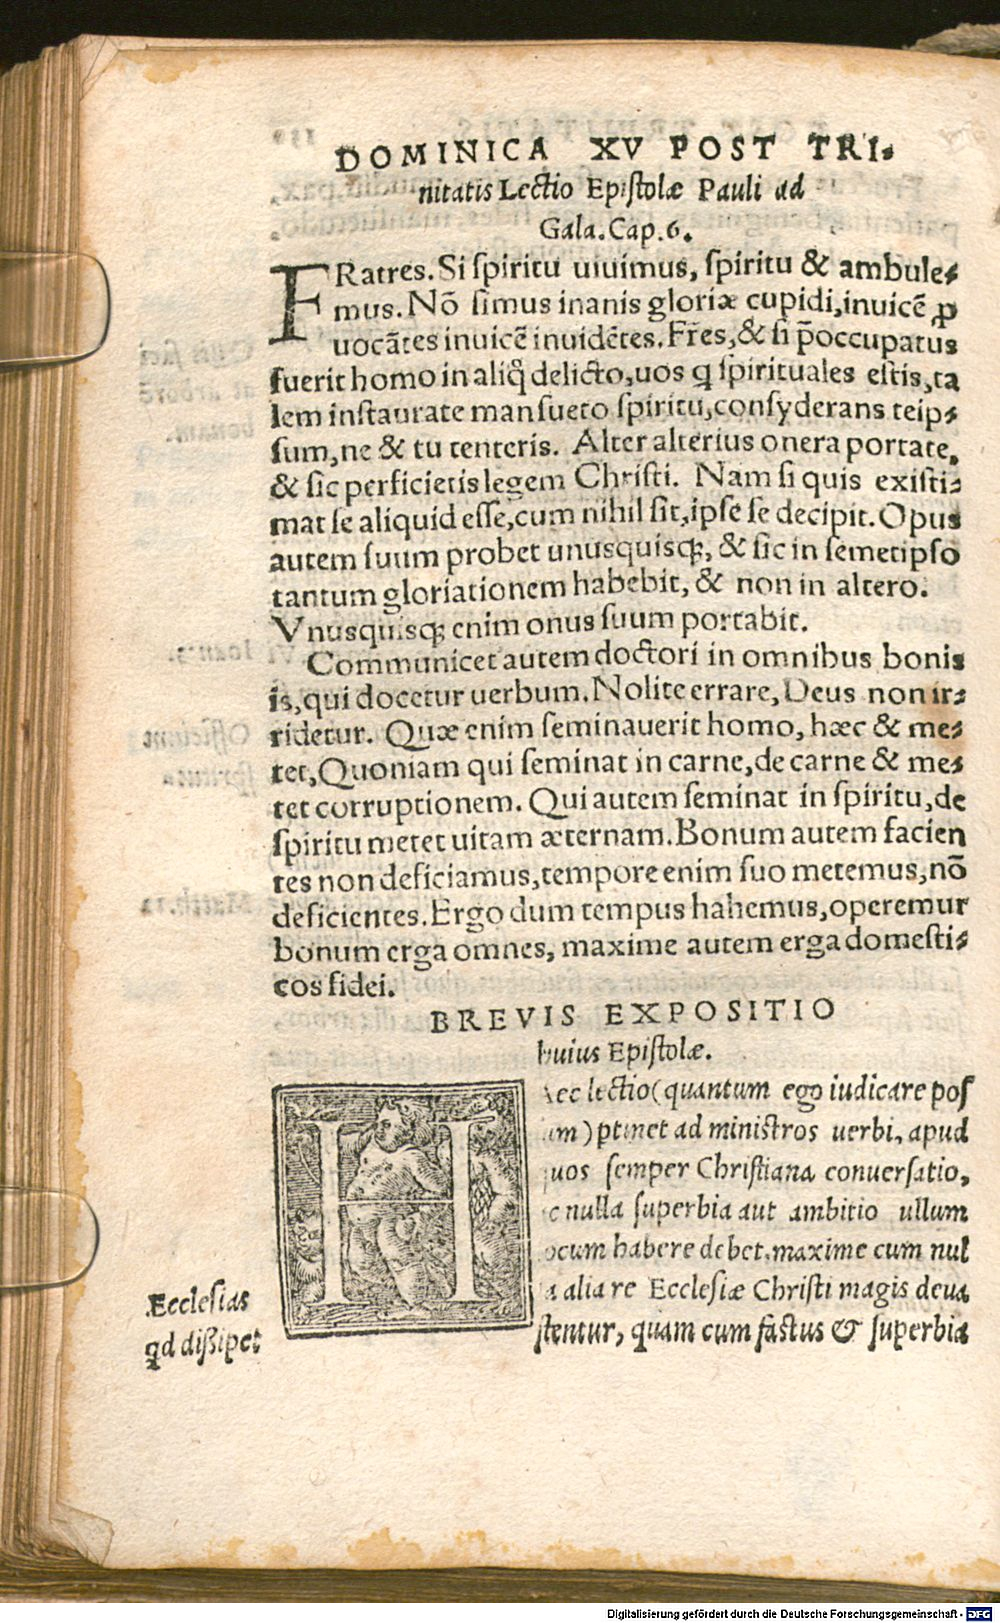 DOMINICA XV POST TRI-
nitatis Lectio Epistolæ Pauli ad
Gala. Cap. 6.
FRatres. Si spiritu uiuimus, spiritu & ambule-
mus. Nō simus inanis gloriæ cupidi, inuicē ꝓ
uocātes inuicē inuidētes. Fr̄es, & si p̄occupatus
fuerit homo in aliq̊ delicto, uos q̃ spirituales estis, ta
lem instaurate mansueto spiritu, consyderans teip-
sum, ne & tu tenteris. Alter alterius onera portate,
& sic perficietis legem Christi. Nam si quis existi-
mat se aliquid esse, cum nihil sit, ipse se decipit. Opus
autem suum probet unusquisq;, & sic in semetipso
tantum gloriationem habebit, & non in altero.
Vnusquisq; enim onus suum portabit.
Communicet autem doctori in omnibus bonis
is, qui docetur uerbum. Nolite errare, Deus non ir-
ridetur. Quæ enim seminauerit homo, hæc & me-
tet, Quoniam qui seminat in carne, de carne & me-
tet corruptionem. Qui autem seminat in spiritu, de
spiritu metet uitam æternam. Bonum autem facien
tes non deficiamus, tempore enim suo metemus, nō
deficientes. Ergo dum tempus hahemus, operemur
bonum erga omnes, maxime autem erga domesti-
cos fidei.
BREVIS EXPOSITIO
huius Epistolæ.
Haec lectio (quantum ego iudicare pos
sum) ꝑtinet ad ministros uerbi, apud
quos semper Christiana conuersatio,
ac nulla superbia aut ambitio ullum
locum habere debet, maxime cum nul
la alia re Ecclesiæ Christi magis deua
stentur, quam cum fastus & superbia
Ecclesias
qd dissipet
Digitalisierung gefördert durch die Deutsche Forschungsgemeinschaft - DFG